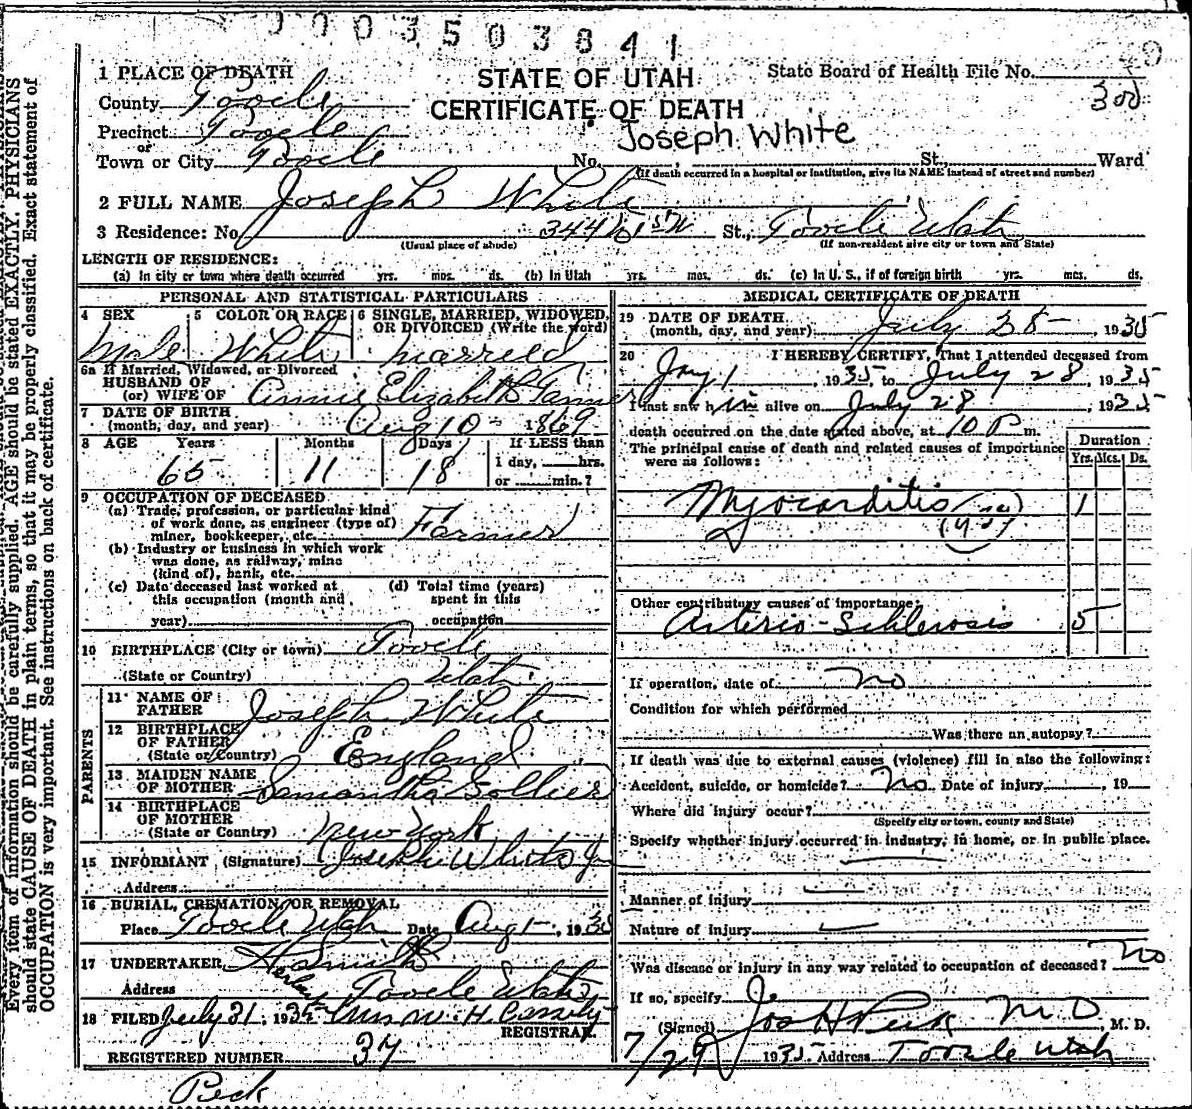 0003503841
1 PLACE OF DEATH
STATE OF UTAH
CERTIFICATE OF DEATH
State Board of Health File No.
County Tooele
Precinct Tooele
or
Town or City Tooele
Joseph White
No. , St., Ward
(If death occurred in a hospital or institution, give its NAME instead of street and number)
2 FULL NAME Joseph White
3 Residence: No. 344 1st W St., Tooele Utah
(Usual place of abode) (If non-resident give city or town and State)
LENGTH OF RESIDENCE:
(a) In city or town where death occurred yrs. mos. ds. (b) In Utah yrs. mos. ds. (c) In U. S., if of foreign birth yrs. mcs. ds.
PERSONAL AND STATISTICAL PARTICULARS
4 SEX 5 COLOR OR RACE 6 SINGLE, MARRIED, WIDOWED, OR DIVORCED (Write the word)
Male White married
6a If Married, Widowed, or Divorced
HUSBAND OF
(or) WIFE OF Annie Elizabeth Tanner
7 DATE OF BIRTH
(month, day, and year) Aug 10 - 1869
8 AGE Years Months Days If LESS than
65 11 18 1 day, hrs.
or min.?
9 OCCUPATION OF DECEASED
(a) Trade, profession, or particular kind
of work done, as engineer (type of)
miner, bookkeeper, etc. Farmer
(b) Industry or business in which work
was done, as railway, mine
(kind of), bank, etc.
(c) Date deceased last worked at (d) Total time (years)
this occupation (month and spent in this
year) occupation
10 BIRTHPLACE (City or town) Tooele
(State or Country) Utah
PARENTS
11 NAME OF
FATHER Joseph White
12 BIRTHPLACE
OF FATHER
(State or Country) England
13 MAIDEN NAME
OF MOTHER Samantha Gollier
14 BIRTHPLACE
OF MOTHER
(State or Country) New York
15 INFORMANT (Signature) Joseph White Jr
Address
16 BURIAL, CREMATION, OR REMOVAL
Place Tooele Utah Date Aug 1 -, 1935
17 UNDERTAKER
Address Tooele Utah
18 FILED July 31, 1935 Mrs W. H. Cassity
REGISTRAR
REGISTERED NUMBER 37
Peck
MEDICAL CERTIFICATE OF DEATH
19 DATE OF DEATH
(month, day, and year) July 28 - 1935
20 I HEREBY CERTIFY, That I attended deceased from
Jan 1, 1935, to July 28, 1935
I last saw him alive on July 28, 1935
death occurred on the date stated above, at 10 P m.
The principal cause of death and related causes of importance
were as follows:
Duration
Yrs. Mcs. Ds.
Myocarditis 1
Other contributory causes of importance:
Arterio-Schlerosis 5
If operation, date of no
Condition for which performed
Was there an autopsy?
If death was due to external causes (violence) fill in also the following:
Accident, suicide, or homicide? No Date of injury , 19
Where did injury occur?
(Specify city or town, county and State)
Specify whether injury occurred in industry, in home, or in public place.
Manner of injury
Nature of injury
Was disease or injury in any way related to occupation of deceased? No
If so, specify
(Signed) Jos H Peck M D, M. D.
7/29 1935 Address Tooele Utah
Every item of information should be carefully supplied. AGE should be stated EXACTLY. PHYSICIANS
should state CAUSE OF DEATH in plain terms, so that it may be properly classified. Exact statement of
OCCUPATION is very important. See instructions on back of certificate.